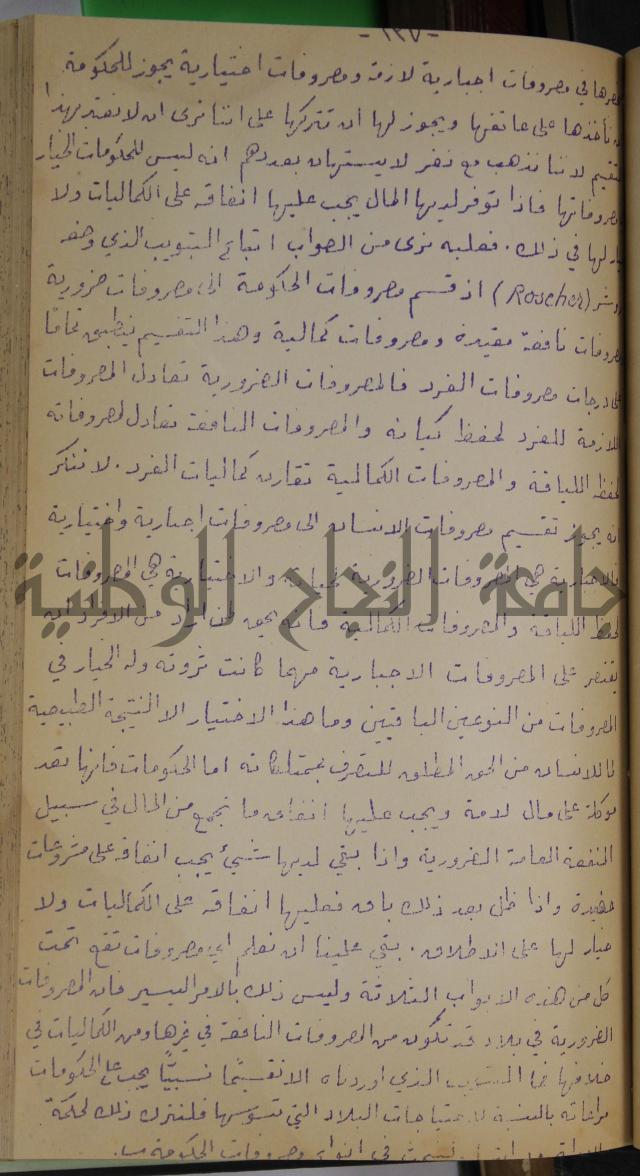 -١٣٧-
حصرها في مصروفات اجبارية لازمة ومصروفات اختيارية يجوز للحكومة
ان تأخذها على عاتقها ويجوز لها ان تتركها على اننا نرى ان لا نعتبر بهذا
التقسيم لاننا نذهب مع نفر لا يستهان بعددهم انه ليس للحكومات الخيار
بمصروفاتها فاذا توفر لديها المال يجب عليها انفاقه على الكماليات ولا
خيار لها في ذلك. فعليه نرى من الصواب اتباع التبويب الذي وضعه
روشر (Roscher) اذ قسم مصروفات الحكومة الى مصروفات ضرورية
ومصروفات نافعة مفيدة ومصروفات كمالية وهذا التقسيم ينطبق تماما
على درجات مصروفات الفرد فالمصروفات الضرورية تعادل المصروفات
اللازمة للفرد لحفظ كيانه والمصروفات النافعة تعادل مصروفاته
لحفظ اللياقة والمصروفات الكمالية تقارن كماليات الفرد. لا ننكر
انه يجوز تقسيم مصروفات الانسان الى مصروفات اجبارية واختيارية
فالاجبارية هي المصروفات الضرورية والاختيارية هي المصروفات
لحفظ اللياقة والمصروفات الكمالية فانه يحق لمن اراد من الافراد ان
يقتصر على المصروفات الاجبارية مهما كانت ثروته وله الخيار في
المصروفات من النوعين الباقيين وما هذا الاختيار الا النتيجة الطبيعية
لما للانسان من الحق المطلق للتصرف بممتلكاته اما الحكومات فانها تعد
موكلة على مال لامة ويجب عليها انفاق ما تجمع من المال في سبيل
المنفعة العامة الضرورية واذا بقي لديها شيئ يجب انفاقه على مشروعات
مفيدة واذا ظل بعد ذلك باق فعليها انفاقه على الكماليات ولا
خيار لها على الاطلاق. بقي علينا ان نعلم اي مصروفات تقع تحت
كل من هذه الابواب الثلاثة وليس ذلك بالامر اليسير فان المصروفات
الضرورية في بلاد قد تكون من المصروفات النافعة في غيرها ومن الكماليات في
خلافها فما التبويب الذي اوردناه الا تقسيمًا نسبيًّا يجب على الحكومات
مراعاته بالنسبة لاحتياجات البلاد التي تسوسها فلنترك ذلك لحكمة
في انواع مصروفات الحكومة
جامعة النجاح الوطنية